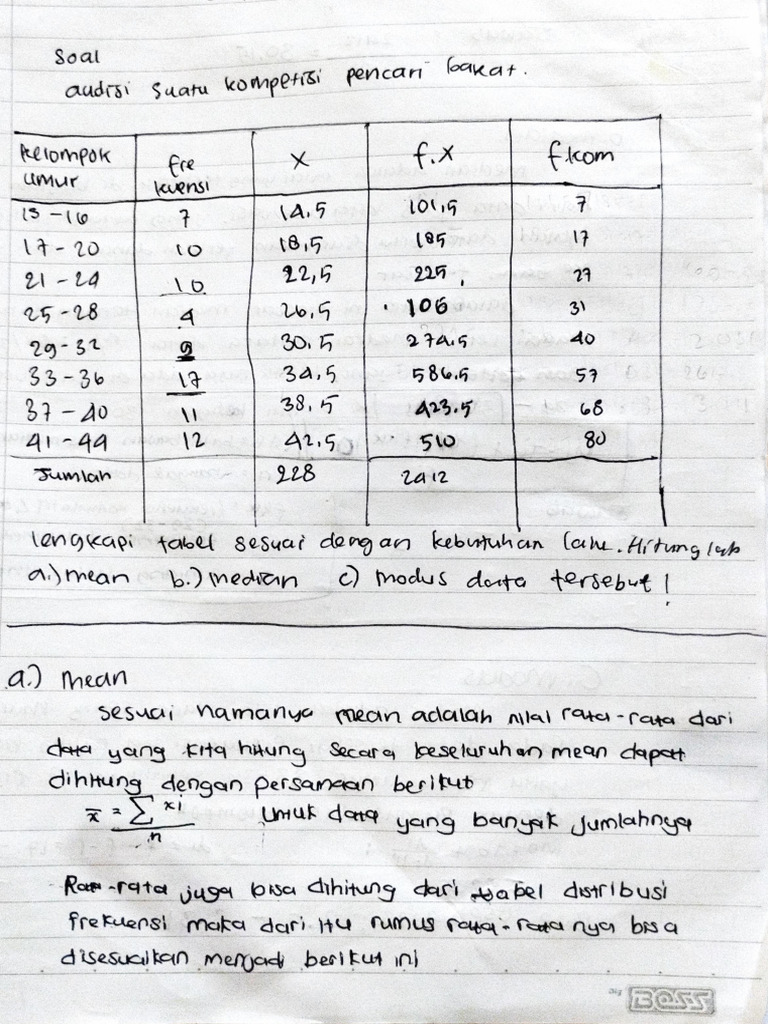 Soal
audisi suatu kompetisi pencari bakat.
Kelompok umur | fre kuensi | X | f.X | f.kom
13-16 | 7 | 14,5 | 101,5 | 7
17-20 | 10 | 18,5 | 185 | 17
21-24 | 10 | 22,5 | 225 | 27
25-28 | 4 | 26,5 | 106 | 31
29-32 | 9 | 30.5 | 274.5 | 40
33-36 | 17 | 34,5 | 586.5 | 57
37-40 | 11 | 38,5 | 423.5 | 68
41-44 | 12 | 42.5 | 510 | 80
Jumlah | 228 | 2412
lengkapi tabel sesuai dengan kebutuhan lalu. Hitunglah
a.) mean b.) median c) modus data tersebut!
a.) mean
sesuai namanya mean adalah nilai rata-rata dari
data yang kita hitung secara keseluruhan mean dapat
dihitung dengan persamaan berikut
x̄ = ∑ xi / n untuk data yang banyak jumlahnya
Rata-rata juga bisa dihitung dari tabel distribusi
frekuensi maka dari itu rumus rata-rata nya bisa
disesuaikan menjadi berikut ini
BOSS